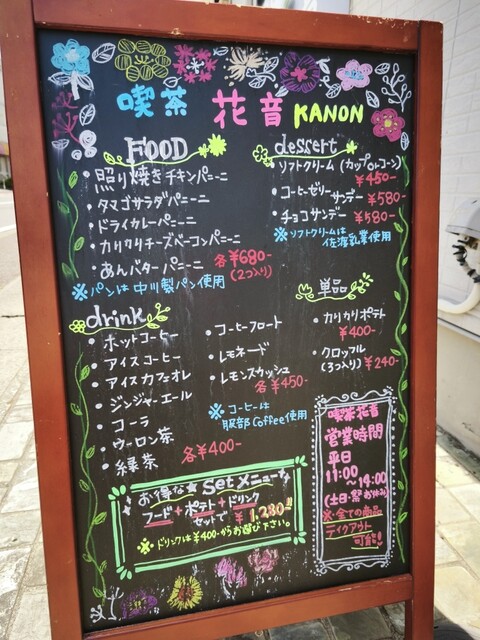 喫茶 花音 KANON
FOOD
・照り焼きチキンパニーニ
・タマゴサラダパニーニ
・ドライカレーパニーニ
・カリカリチーズベーコンパニーニ
・あんバターパニーニ 各¥680-
(2コ入り)
※パンは中川製パン使用
dessert
・ソフトクリーム(カップorコーン)
¥450-
・コーヒーゼリーサンデー ¥580-
・チョコサンデー ¥580-
※ソフトクリームは
佐渡乳業使用
単品
・カリカリポテト
¥400-
・クロッフル
(3つ入り) ¥240-
drink
・ホットコーヒー
・アイスコーヒー
・アイスカフェオレ
・ジンジャーエール
・コーラ
・ウーロン茶
・緑茶 各¥400-
・コーヒーフロート
・レモネード
・レモンスカッシュ
各¥450-
※コーヒーは
服部Coffee使用
お得な★setメニュー
フード+ポテト+ドリンク
セットで ¥1,280-!!
※・ドリンクは¥400-からお選び下さい。
喫茶花音
営業時間
平日
11:00
〜14:00
(土日・祭お休み)
※全ての商品
テイクアウト
可能!